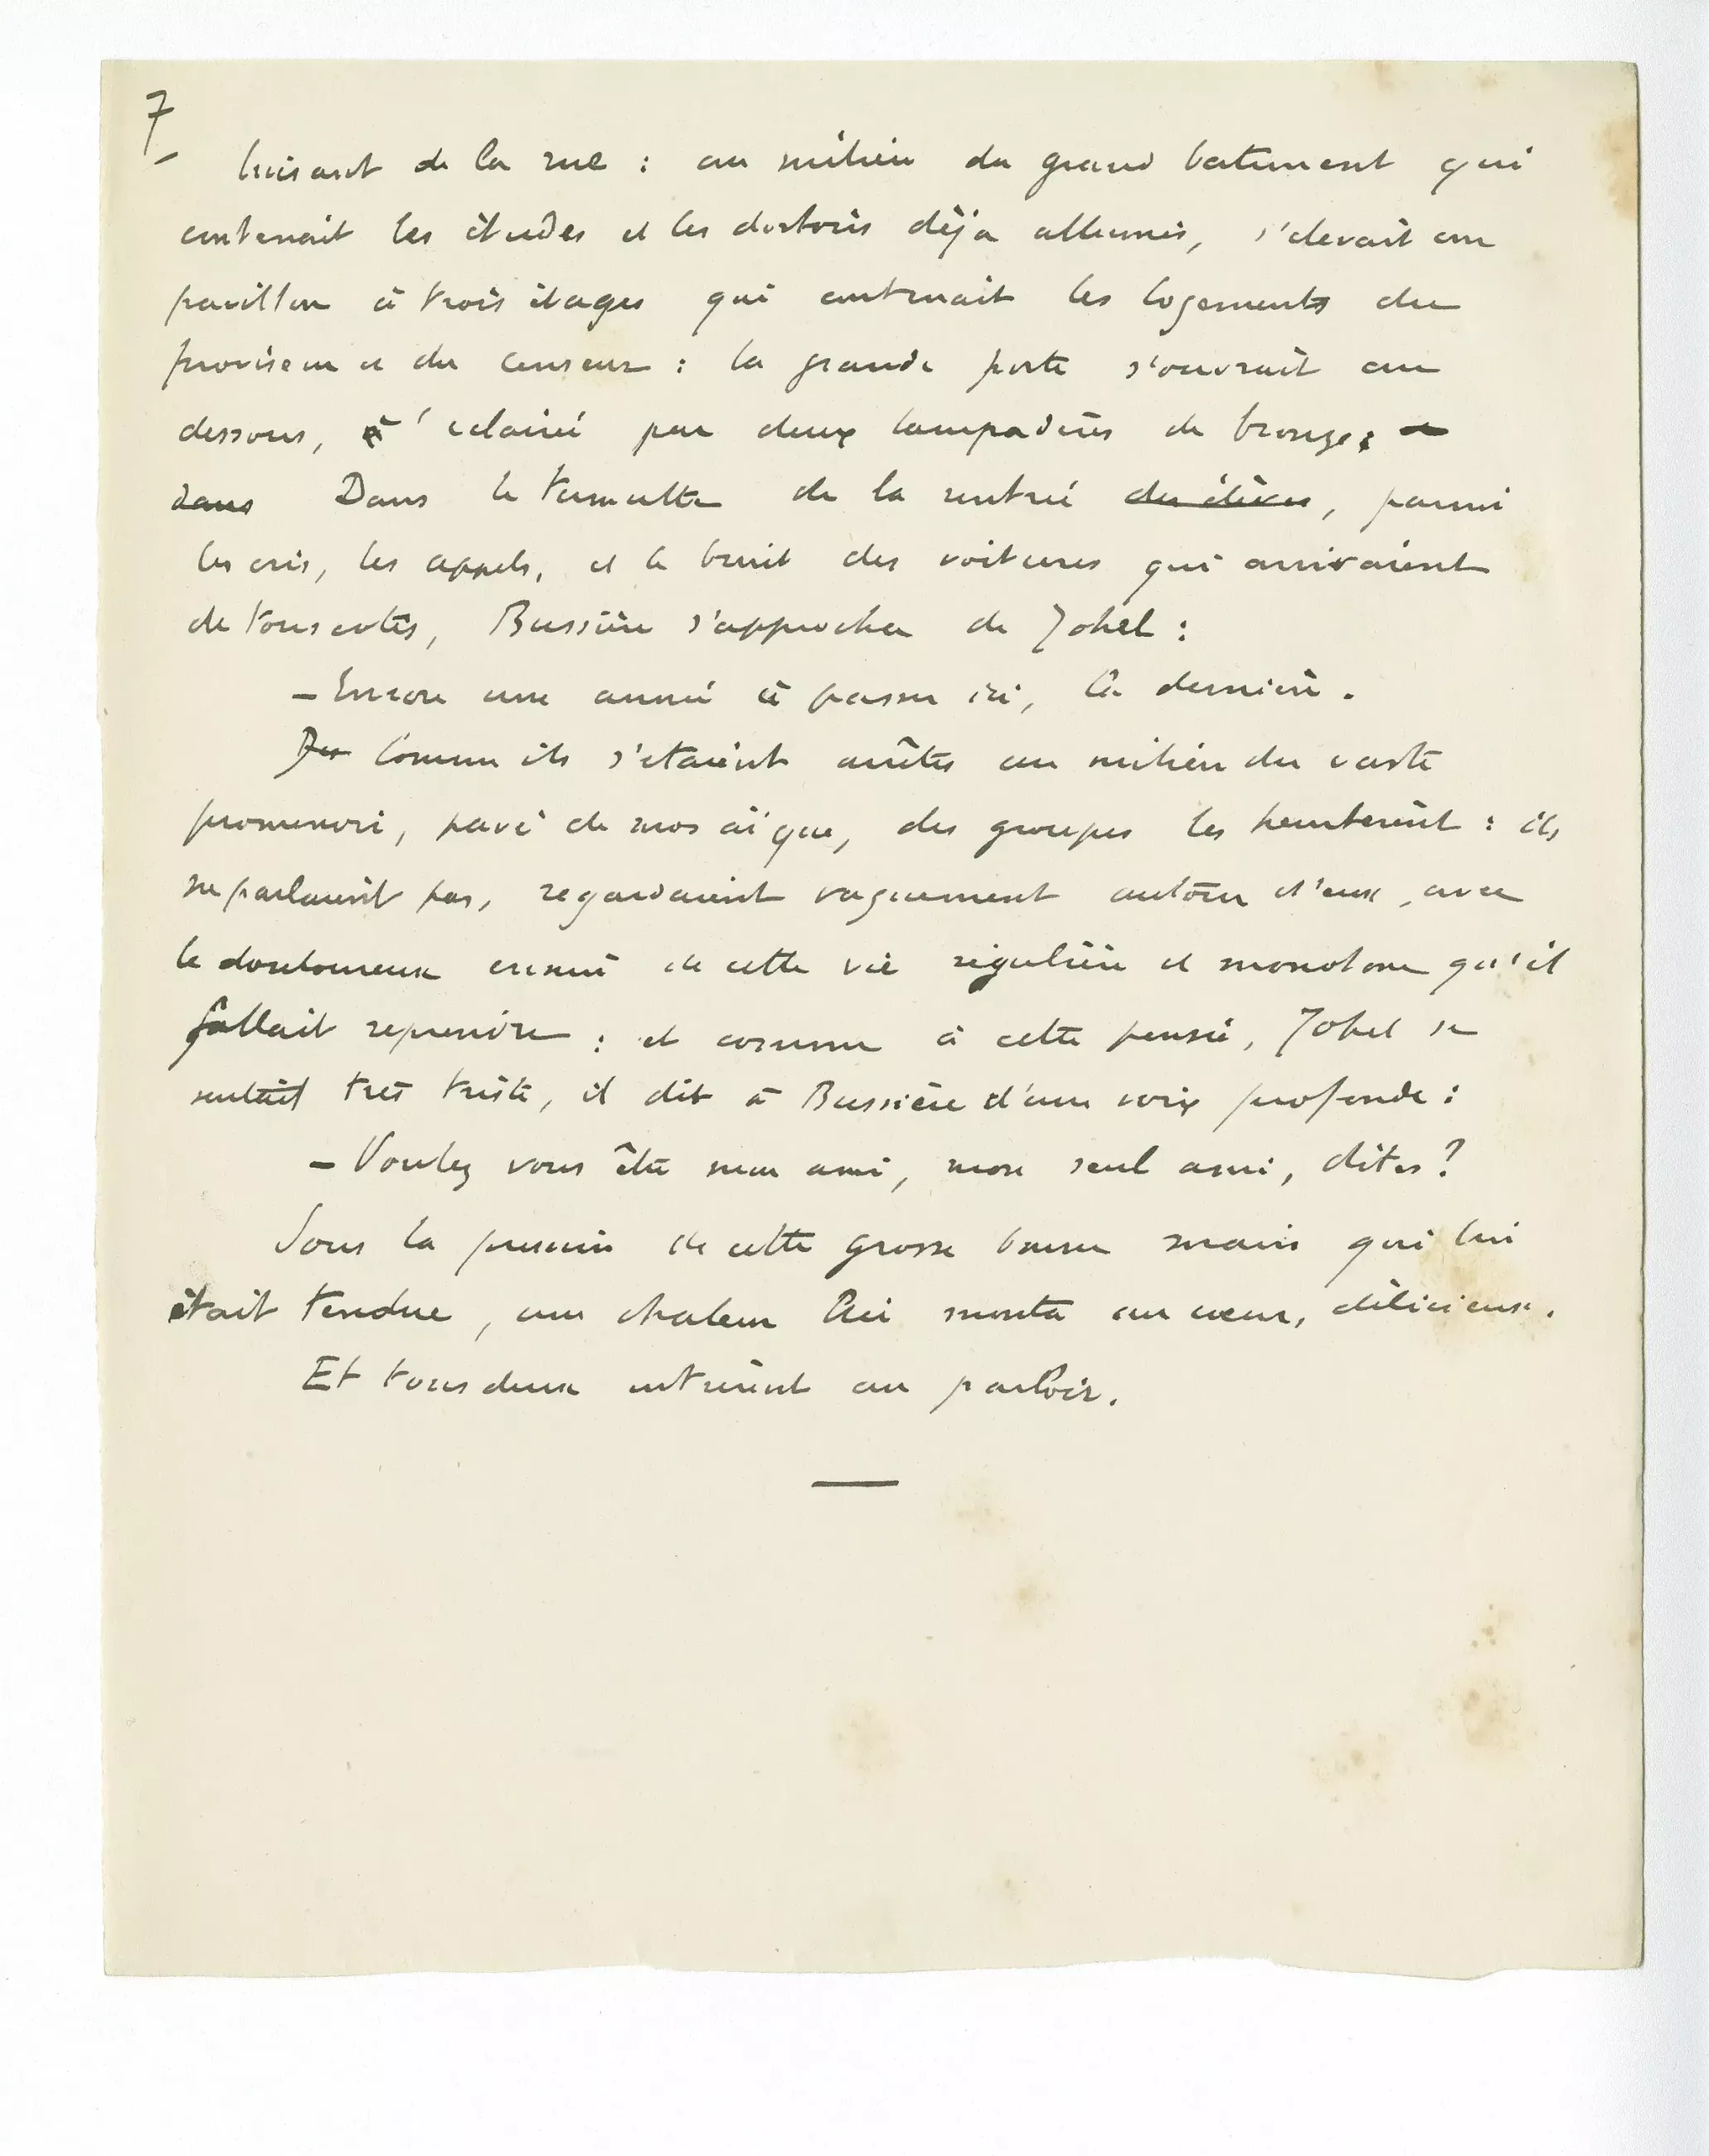 7
luisant de la rue : au milieu du grand batiment qui
contenait les études et les dortoirs déja allumés, s'élevait un
pavillon à trois étages qui contenait les logements du
proviseur et du censeur : la grande porte s'ouvrait au
dessous, éclairée par deux lampadaires de bronze.
dans Dans le tumulte de la rentrée des élèves, parmi
les cris, les appels, et le bruit des voitures qui arrivaient
de tous cotés, Bussière s'approcha de Johel :
– Encore une année à passer ici, la dernière.
Comme ils s'etaient arrêtés au milieu du vaste
promenoir, pavé de mosaïque, des groupes les heurtèrent : ils
ne parlaient pas, regardaient vaguement autour d'eux, avec
le douloureux ennui de cette vie régulière et monotone qu'il
fallait reprendre : et comme à cette pensée, Johel se
sentait très triste, il dit à Bussière d'une voix profonde :
– Voulez vous être mon ami, mon seul ami, dites ?
Sous la pression de cette grosse bonne main qui lui
était tendue, une chaleur lui monta au cœur, délicieuse.
Et tous deux entrèrent au parloir.